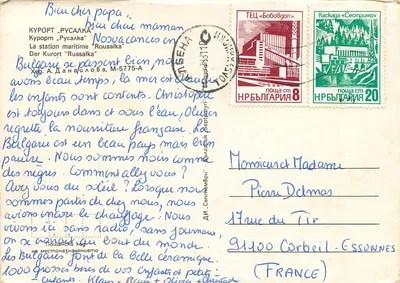 Bien cher papa,
Bien chère maman
КУРОРТ „РУСАЛКА"
Курорт „Русалка"
La station maritime "Roussalka"
Der Kurort "Russalka"
Худ. А. Данаилова, М-5778-А
Nos vacances en
Bulgarie se passent bien nous
avons beau temps, la mer est
les enfants sont contents. Christophe
est toujours dans et sous l'eau, Olivier
regrette la nourriture française. La
Bulgarie est un beau pays mais bien
pauvre. Nous sommes noirs comme
des negres. Comment allez vous?
Avez vous du soleil? Lorsque nous
sommes partis de chez nous, nous
avions encore le chauffage. Nous
vivons ici sans radio, sans journaux,
on se croirait au bout du monde.
Les Bulgares font de la belle céramique.
1000 grosses bises de vos enfants et petits-
enfants.
ДИ „Септември"
ТЕЦ „Бобовдол"
поща ст
НР БЪЛГАРИЯ 8
Каскада „Сестримо"
поща ст
НР БЪЛГАРИЯ 20
Monsieur et Madame
Pierre Delmas
17 rue du Tir
91100 Corbeil-Essonnes
(FRANCE)